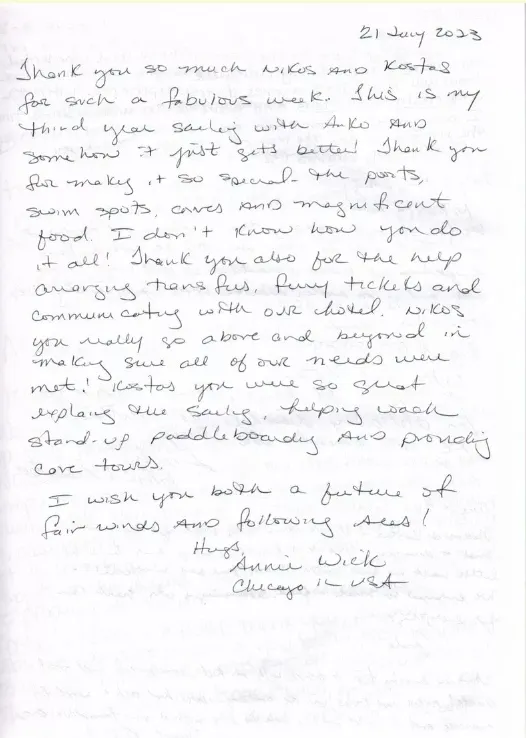 21 July 2023
Thank you so much Nikos AND Kostas
for such a fabulous week. This is my
third year sailing with AnKo AND
somehow it just gets better! Thank you
for making it so special - the ports,
swim spots, caves AND magnificent
food. I don't know how you do
it all! Thank you also for the help
arranging transfers, ferry tickets and
communicating with our hotel. Nikos
you really go above and beyond in
making sure all of our needs were
met! Kostas you were so great
explaining the sailing, helping
stand-up paddleboarding AND providing
cave tours.
I wish you both a future of
fair winds AND following seas!
Hugs,
Annie Wick
Chicago IL USA